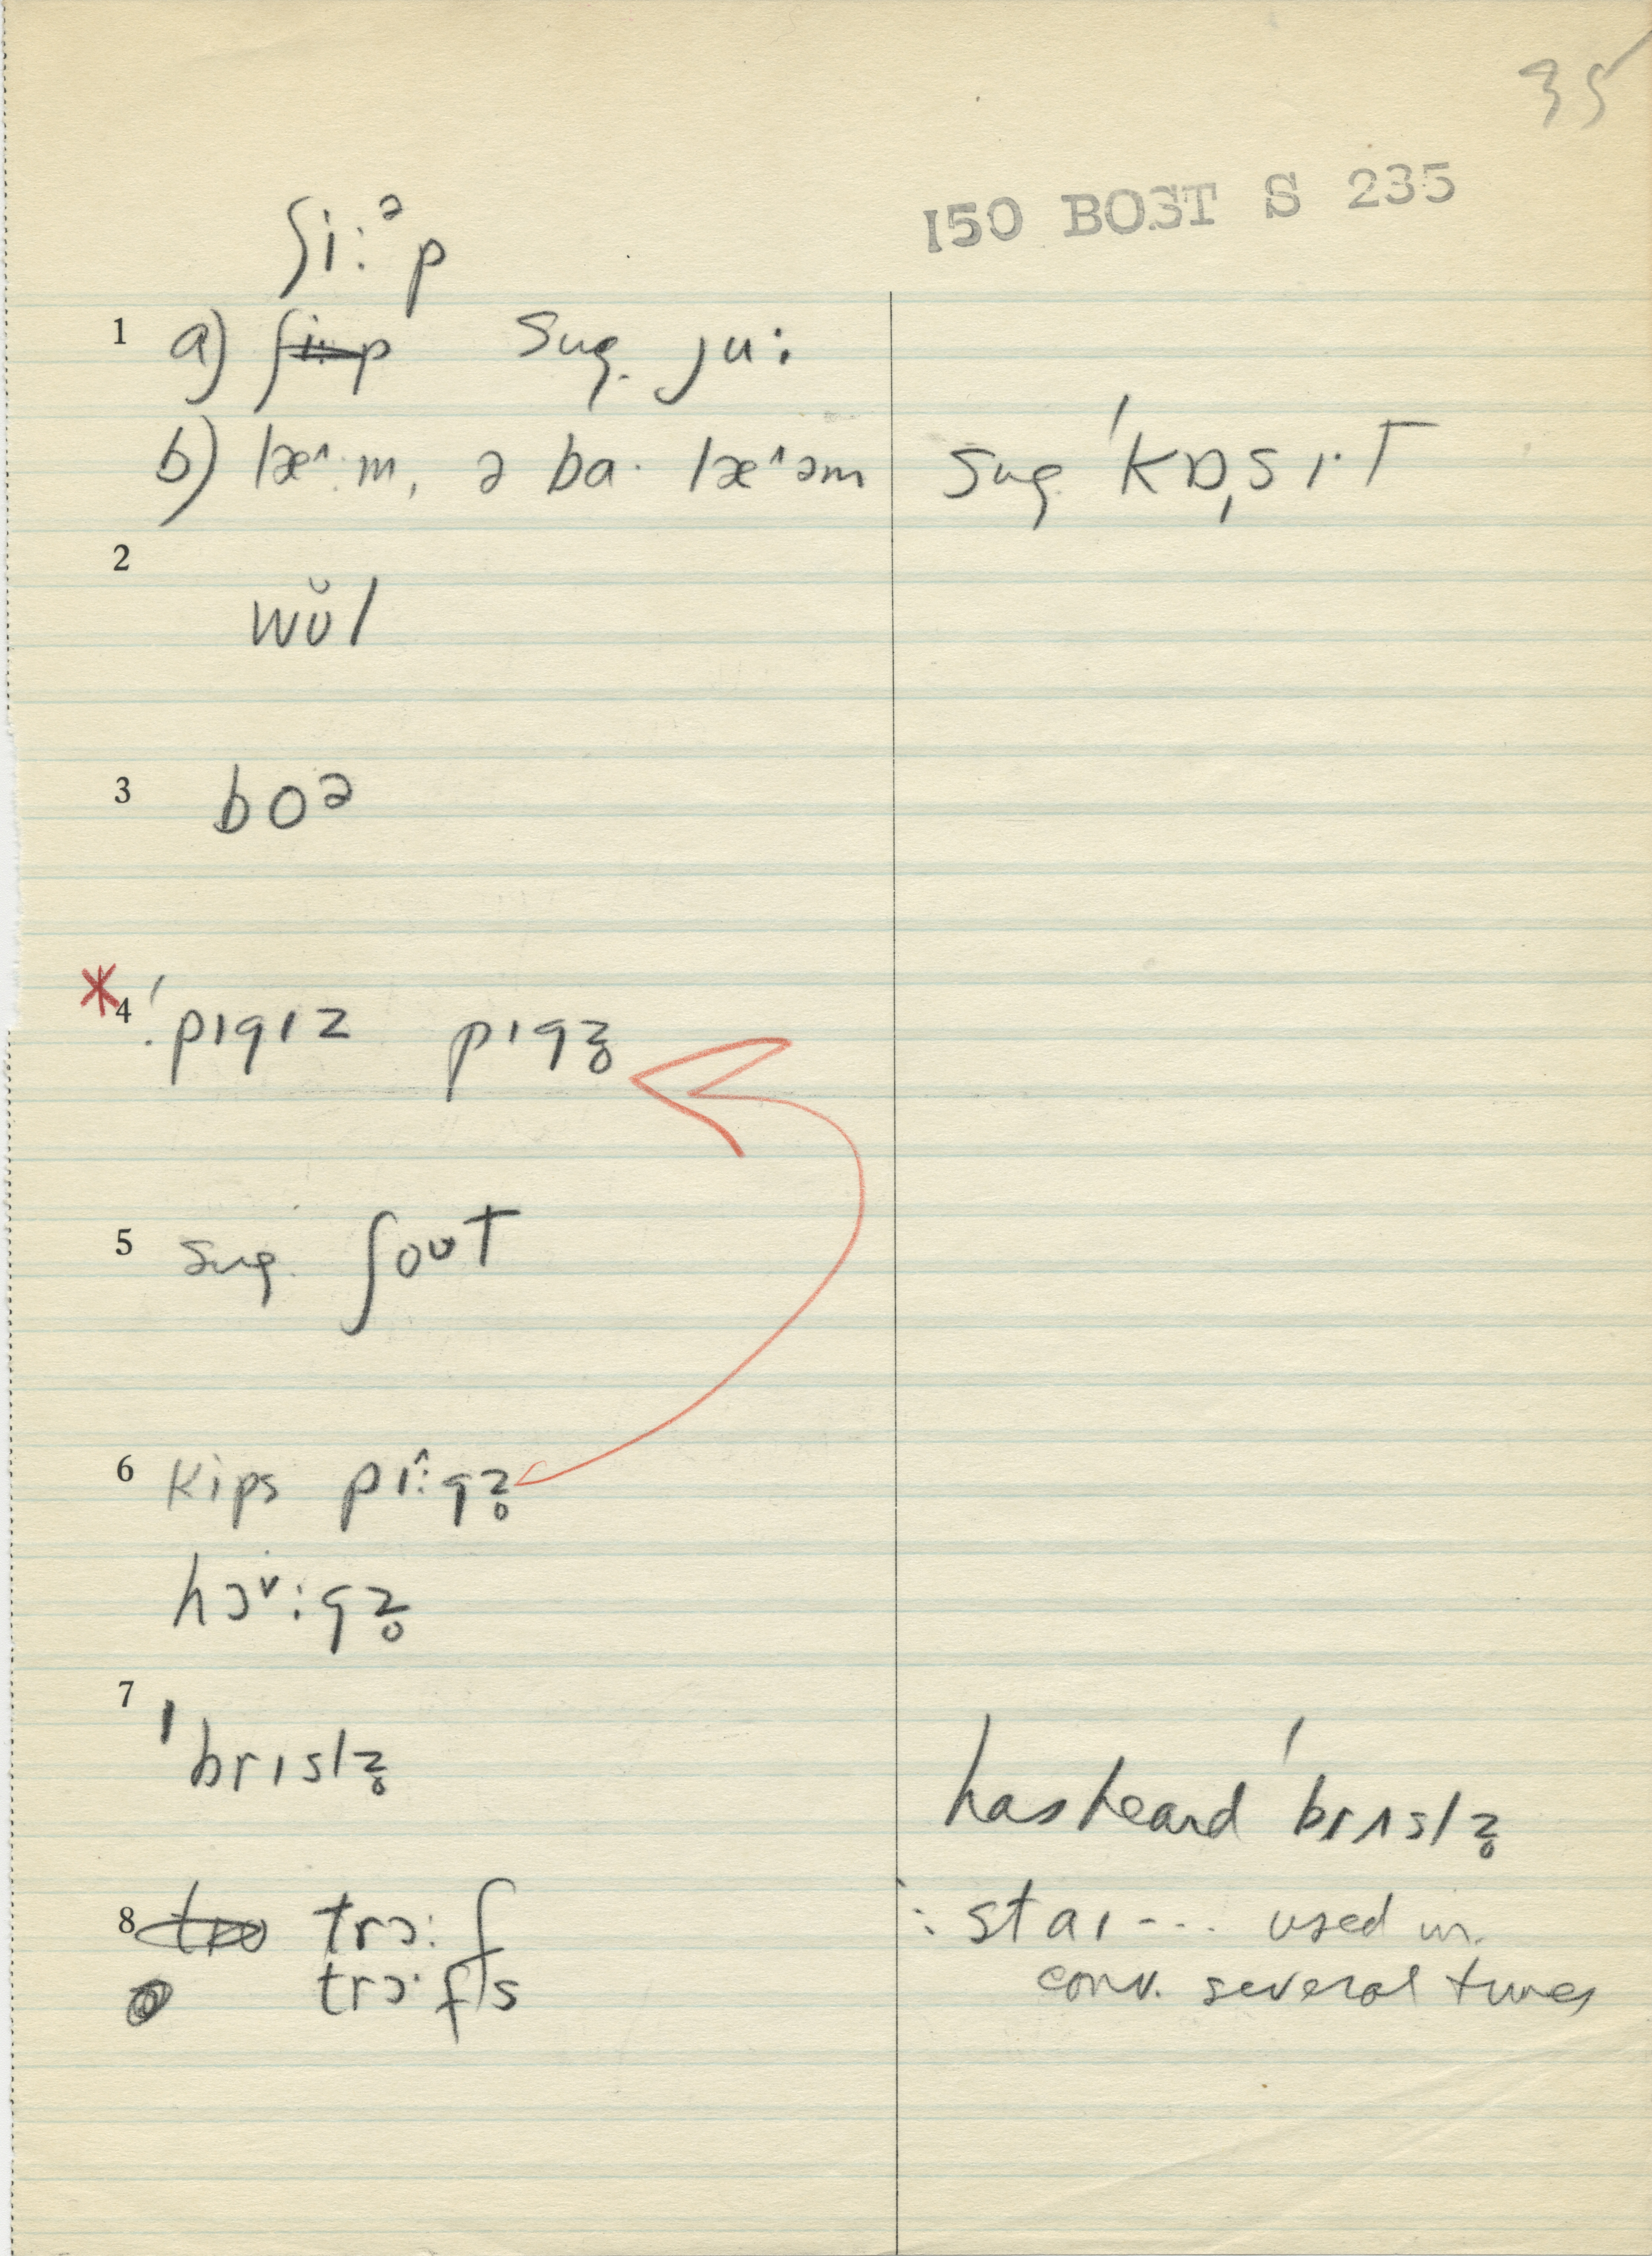 35
150 BOST S 235
ʃi:ᵊp
1 a) ʃi:p sug. ju:
b) læ^:m, ə ba· læ^əm sug. 'kɒˌsɪ·t
2
wʊ̆l
3 boᵊ
*4 'pɪgɪz pɪgz̥
5 sug. ʃoʊt
6 kips pɪ^:gz̥
hɔˇ:gz̥
7 'brɪslz̥
has heard 'brʌslz̥
8 trɔ:f : staɪ --- used in
trɔ·fs conv. several times